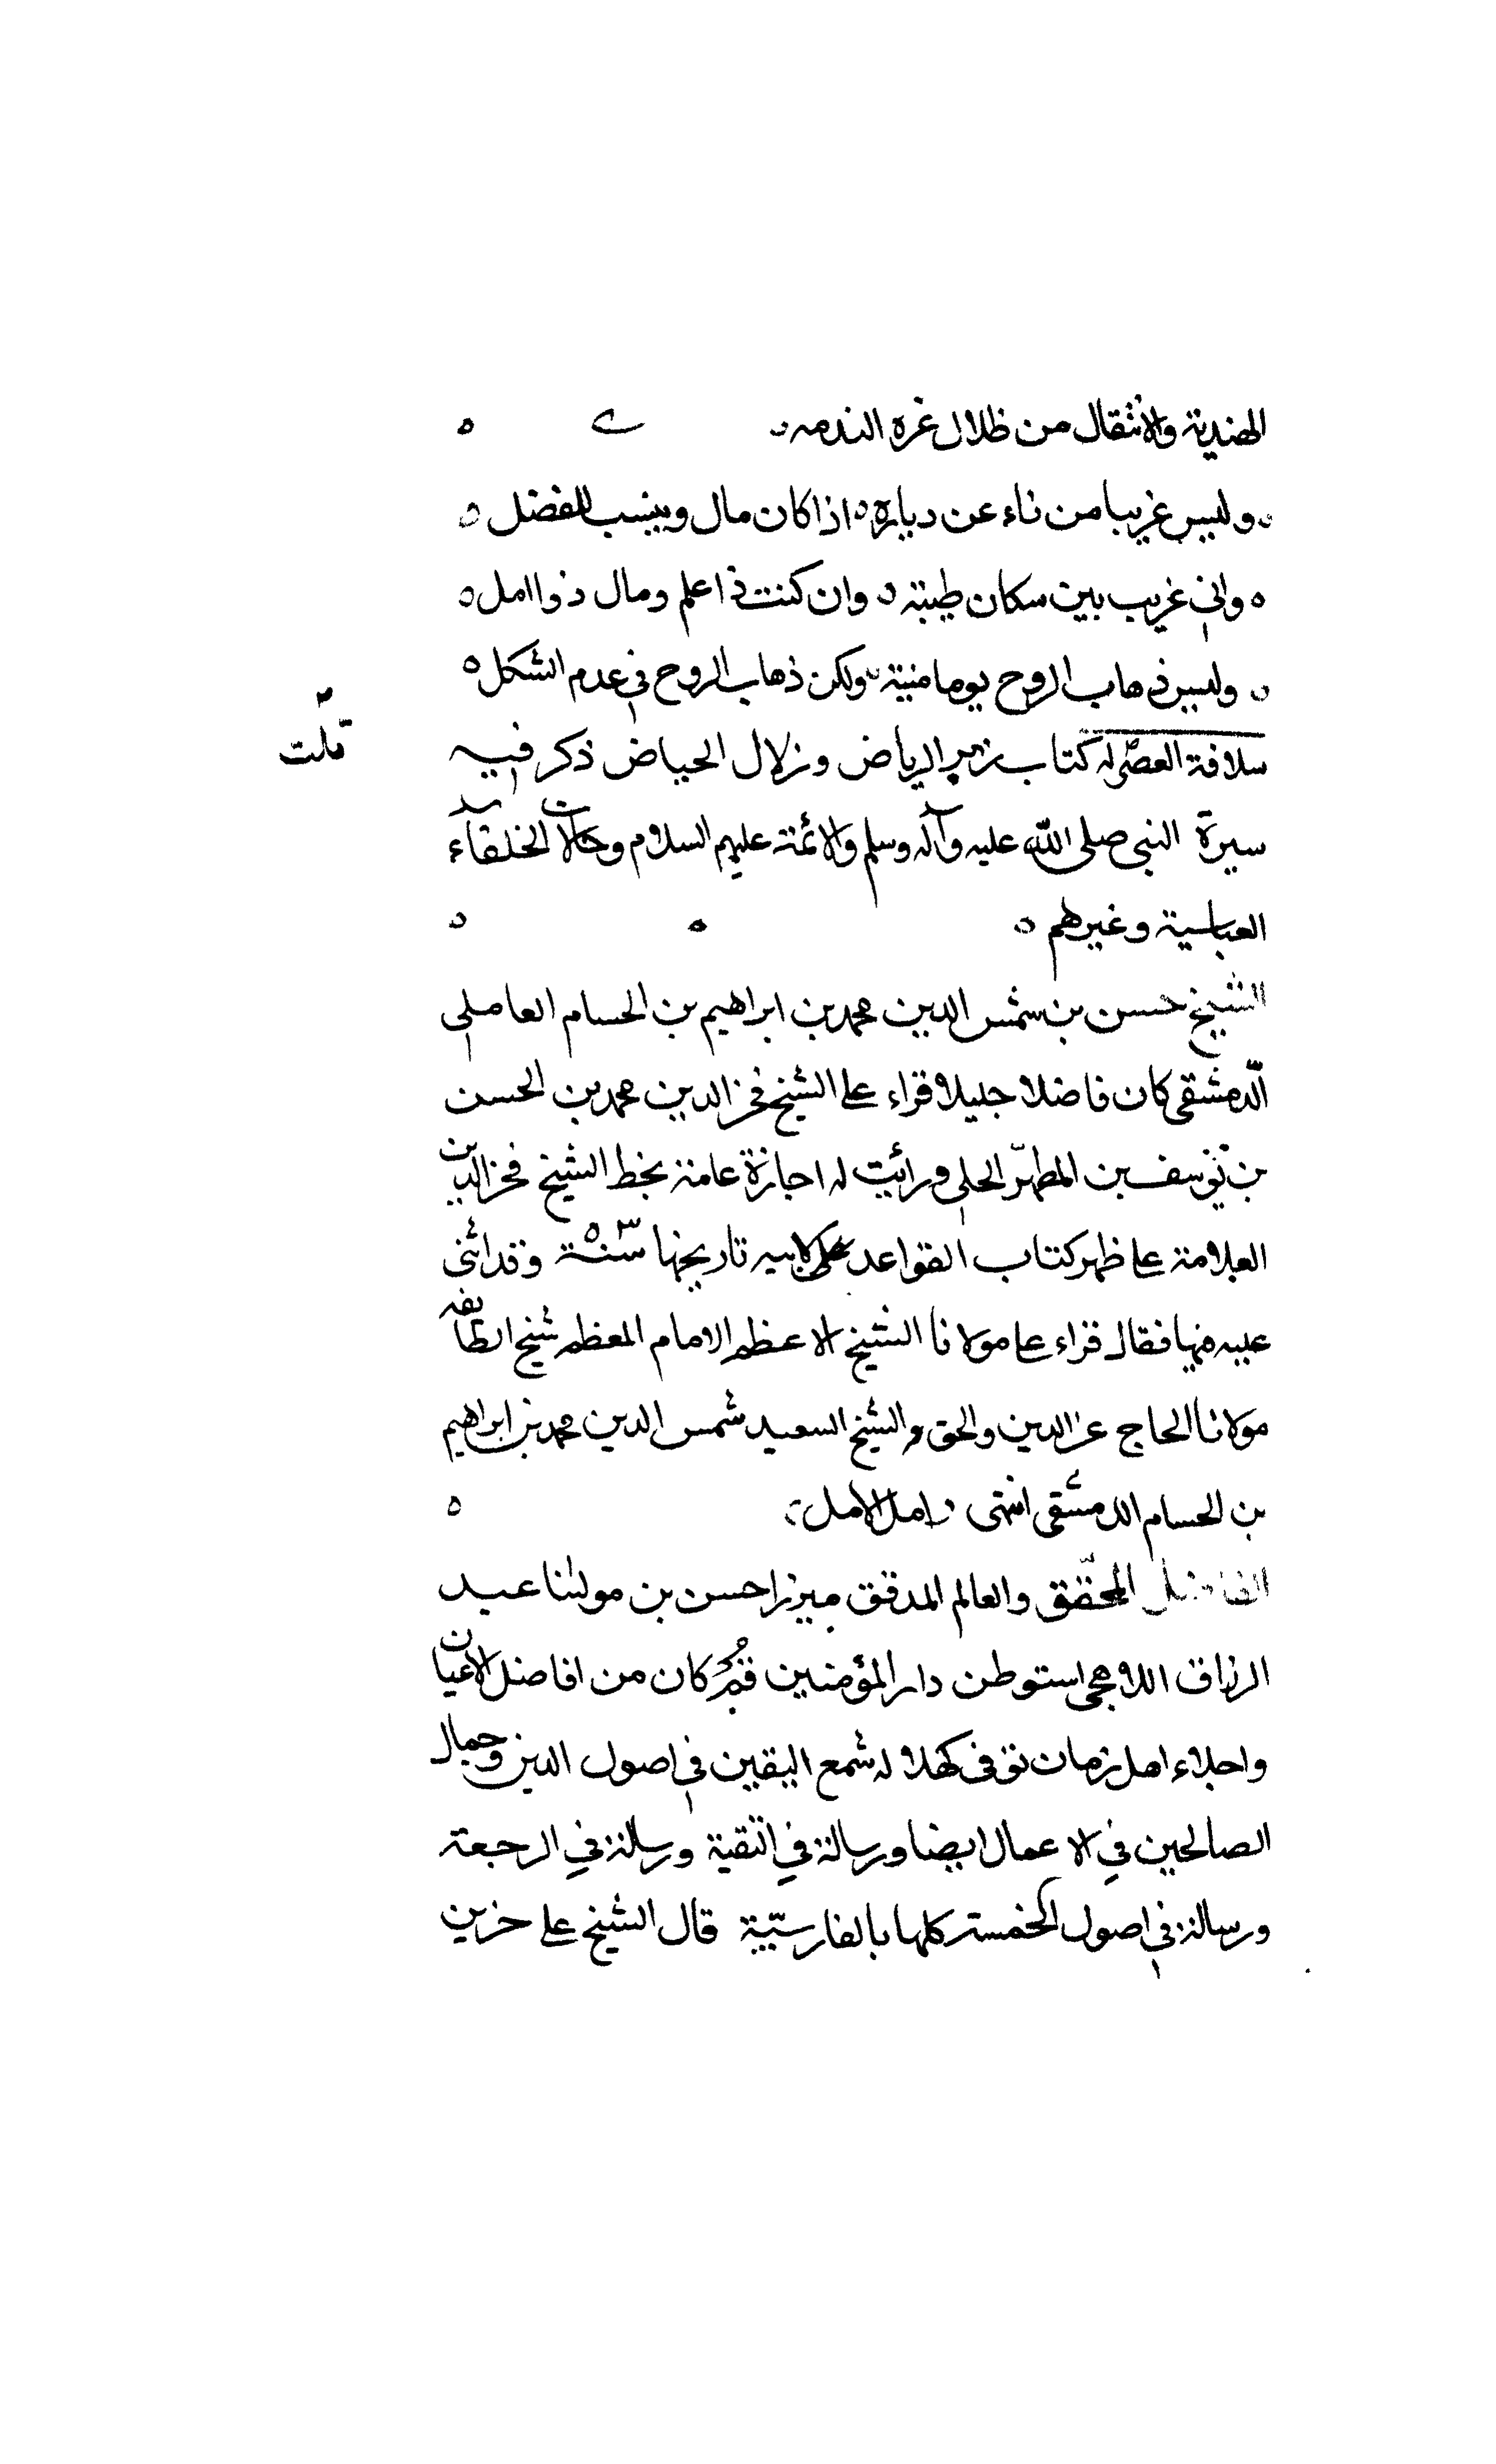 الهندية والانتقال من ظلال غره الندمه
وليس غريبا من ناء عن دياره اذا كان مال وينسب للفضل
واني غريب بين سكان طيبة وان كنت ذا علم ومال ذوا امل
وليس ذهاب الروح يوما منية ولكن ذهاب الروح في عدم الشكل
سلافة العصر له كتاب زهر الرياض وزلال الحياض ذكر فيه
قلت
سيرة النبي صلى الله عليه وآله وسلم والائمة عليهم السلام وحالات الخلفاء
العباسية وغيرهم
الشيخ حسن بن شمس الدين محمد بن ابراهيم بن الحسام العاملي
الدمشقي كان فاضلا جليلا قراء على الشيخ فخر الدين محمد بن الحسن
بن يوسف بن المطهّر الحلي ورائيت له اجازة عامة بخط الشيخ فخر الدين
العلامة على ظهر كتاب القواعد تاريخها سنة ٧٥٣ وقد اثنى
عليه فيها فقال قراء على مولانا الشيخ الاعظم الامام المعظم شيخ الطائفه
مولانا الحاج عز الدين والحق الشيخ السعيد شمس الدين محمد بن ابراهيم
بن الحسام الدمشقي انتهى امل الامل
الفاضل المحقّق والعالم المدقق ميرزا حسن بن مولٰنا عبد
الرزاق اللاهجى استوطن دار المؤمنين قم كان من افاضل الاعيان
واجلاء اهل زمان توفى كهلا له شمع اليقين في اصول الدين وجمال
الصالحين في الاعمال ايضا ورسالة في التقية ورسالة في الرجعة
ورسالة في اصول الخمسة كلها بالفارسيّة قال الشيخ على حزين